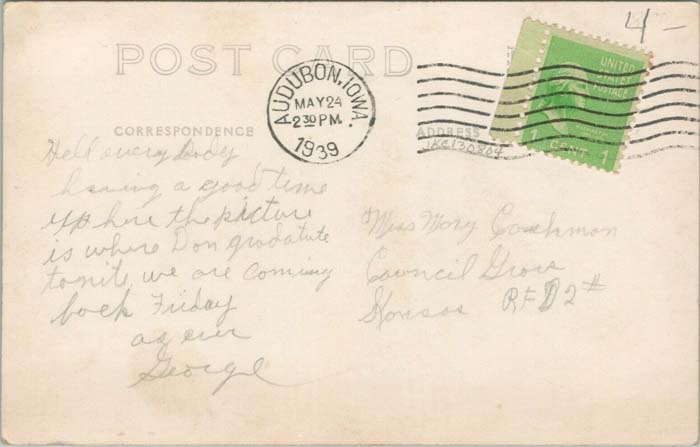 4-
POST CARD
UNITED
STATES
POSTAGE
1 CENT 1
AUDUBON, IOWA.
MAY 24
2 30 PM.
1939
CORRESPONDENCE
ADDRESS
JKC130804
Hell every body
having a good time
up here the picture
is where Don gradatute
tonite we are coming
back Friday
as ever
George
Miss Mary Coshmon
Council Grove
Kansas RFD 2#